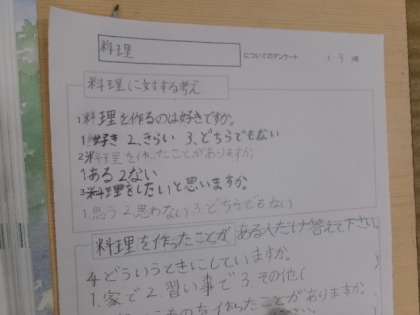 料理 についてのアンケート
料理に対する考え
1料理を作るのは好きですか。
1好き 2.きらい 3.どちらでもない
2料理を作ったことがありますか。
1ある 2ない
3料理をしたいと思いますか。
1.思う 2.思わない 3.どちらでもない
料理を作ったことが ある人だけ答えて下さい
4.どういうときにしていますか。
1.家で 2.習い事で 3.その他(
作ったことがありますか。